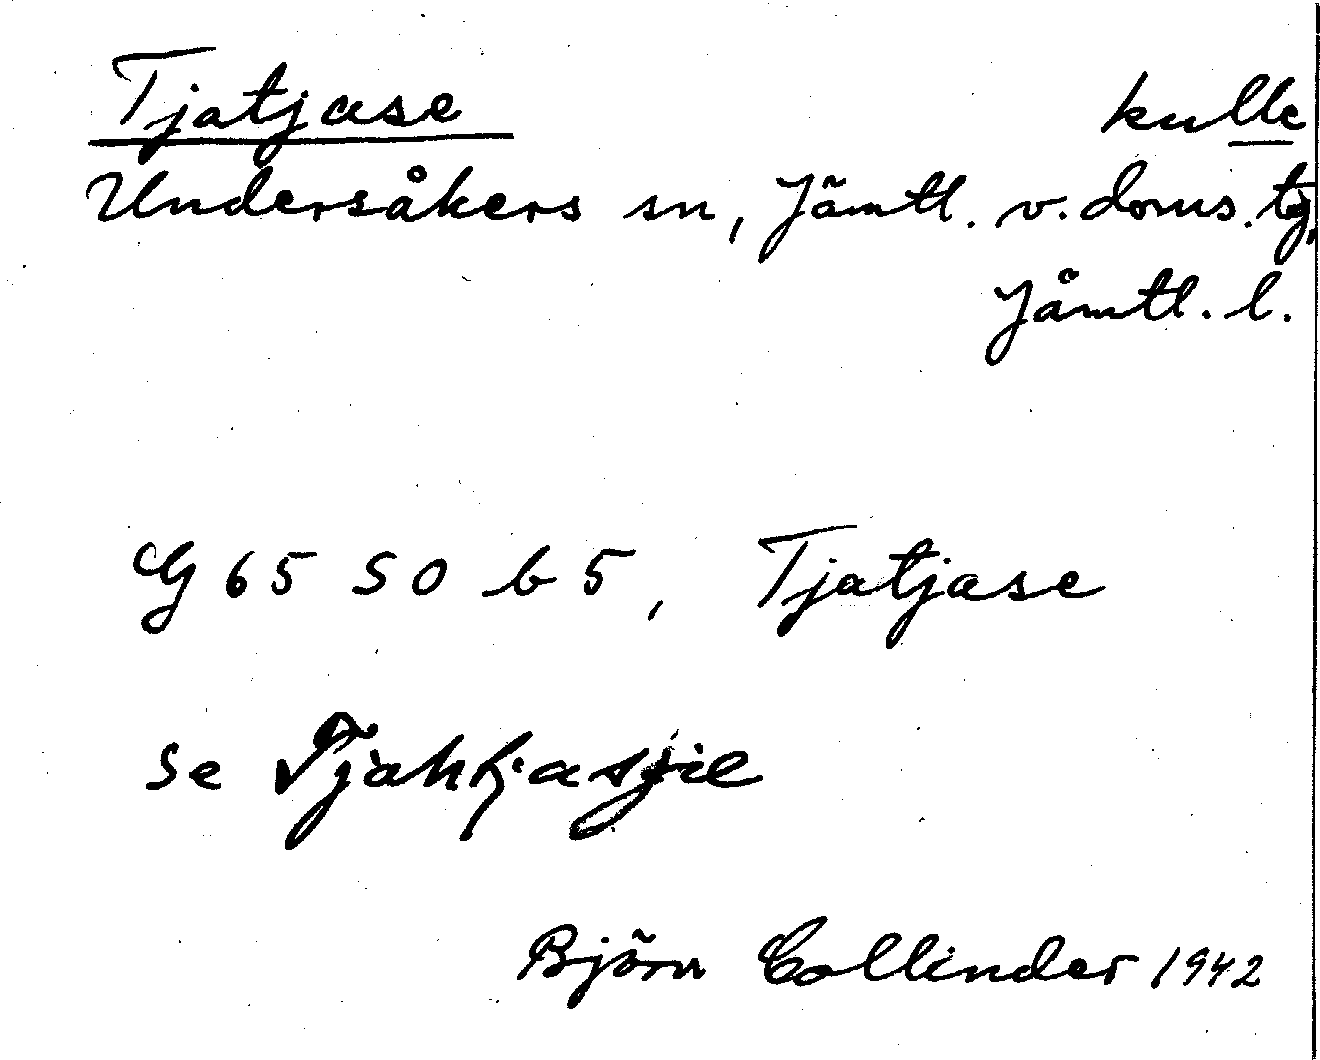 Tjatjase kulle
Undersåkers sn, Jämtl. v. doms. tg,
Jämtl. l.
G 65 50 b 5, Tjatjase
se Tjahkjasjie
Björn Collinder 1942